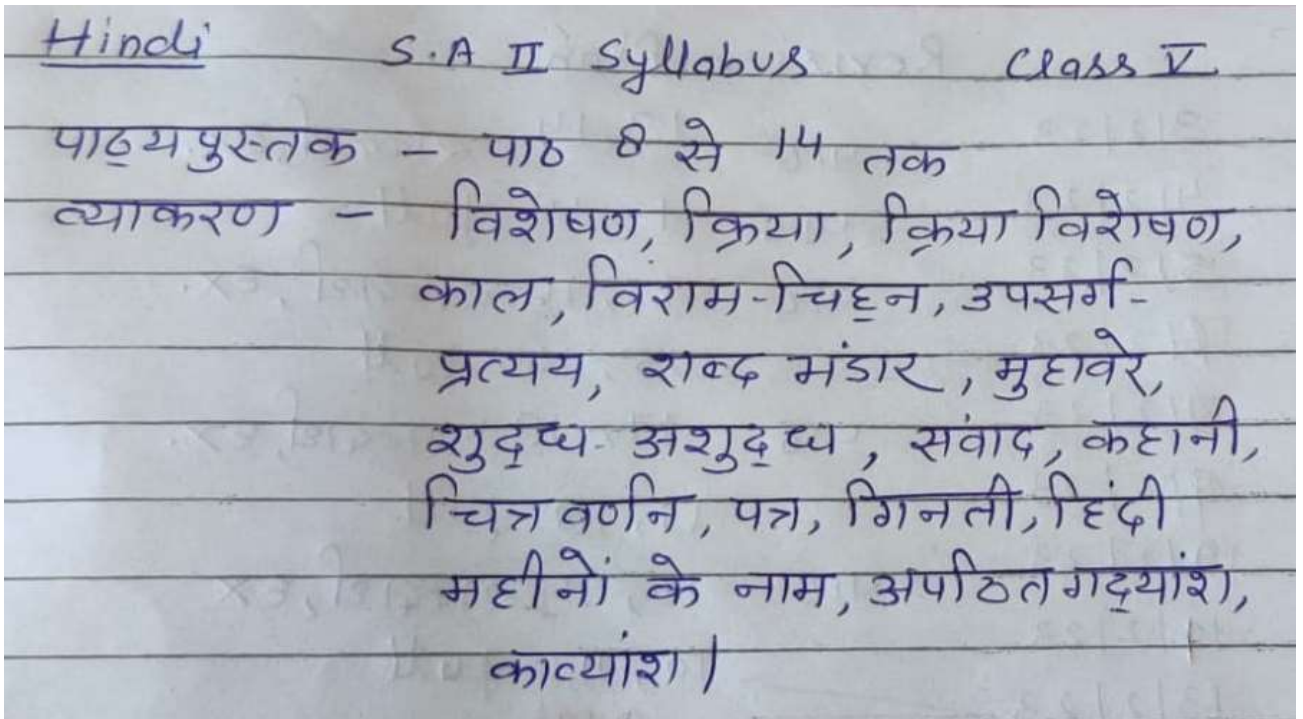 Hindi S.A II Syllabus Class V
पाठ्यपुस्तक - पाठ 8 से 14 तक
व्याकरण - विशेषण, क्रिया, क्रिया विशेषण,
काल, विराम-चिह्न, उपसर्ग-
प्रत्यय, शब्द भंडार, मुहावरे,
शुद्ध-अशुद्ध, संवाद, कहानी,
चित्र वर्णन, पत्र, गिनती, हिंदी
महीनों के नाम, अपठित गद्यांश,
काव्यांश।